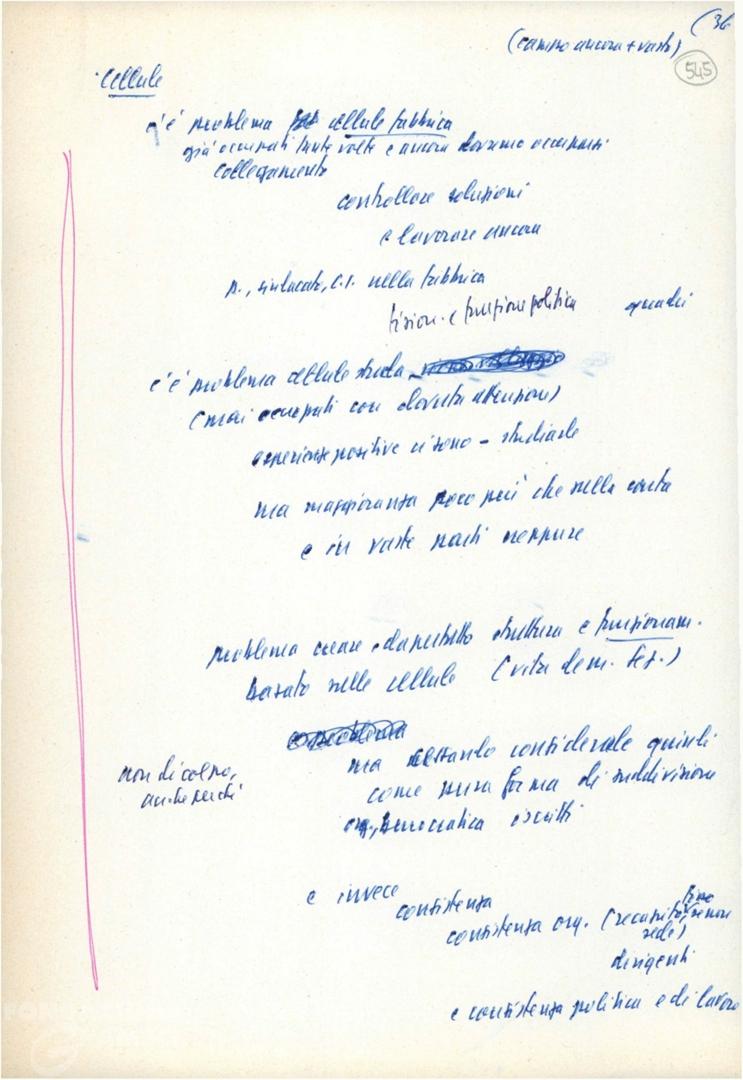 (36
(campo ancora + vasto)
545
Cellule
c'è problema cellule fabbrica
già occupati tante volte e ancora dovremo occuparsi
collegamento
controllare soluzioni
e lavorare ancora
p., sindacato, C.I. nella fabbrica
fision. e funzione politica quadri
c'è problema cellule strada
(mai occupati con dovuta attenzione)
esperienze positive ci sono – studiarle
ma maggioranza poco più che sulla carta
e in vaste parti neppure
problema creare dapertutto struttura e funzionam.
basato sulle cellule (vita dem. sez.)
ma cessando considerarle quindi
come pura forma di suddivisione
non di colpo,
anche perchè
burocratica iscritti
e invece
consistenza
consistenza org. (recapito
sede)
dirigenti
e consistenza politica e di lavoro